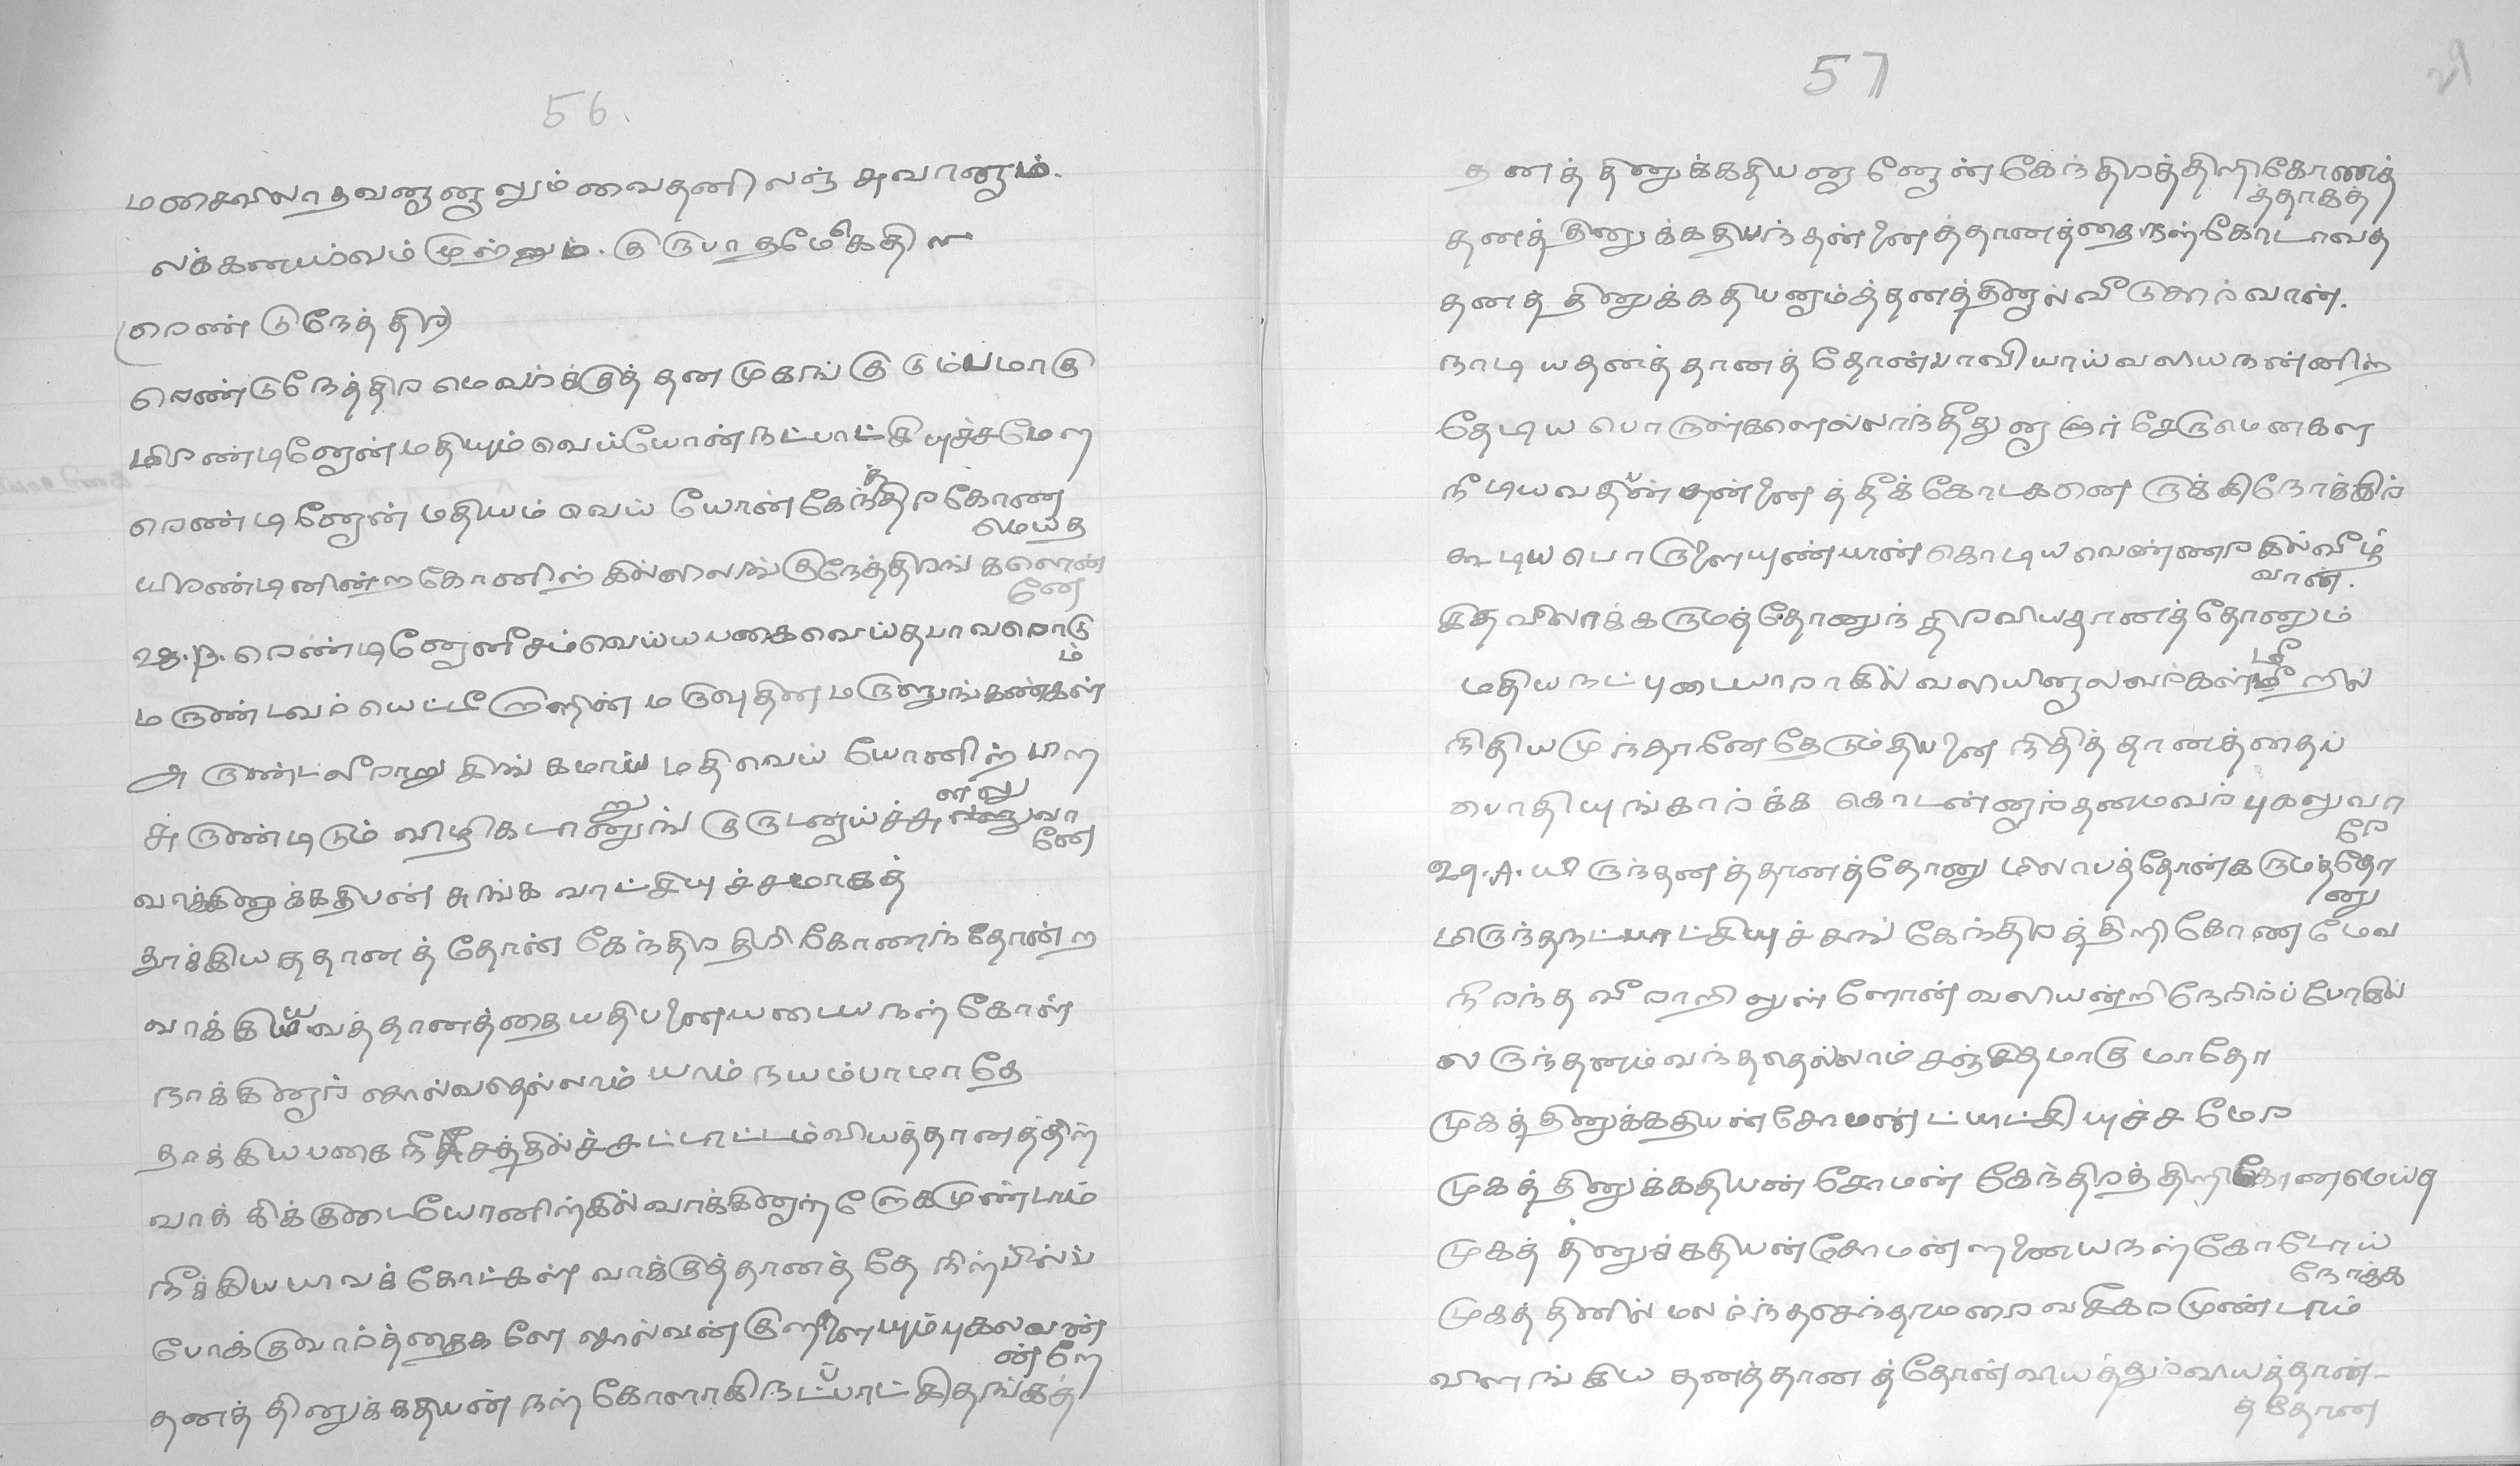 56.
மசைவிலாதவனானாலும் வைதனிலஞ் சுவானாம்.
லக்கனபாவம் முற்றும். குருபாதமே கதி
(ரெண்டுநேத்திர)
ரெண்டுநேத்திரமெவாக்குத் தனமுகங் குடும்பமாகு
மிரண்டினோன் மதியும் வெய்யோன் நட்பாட்சியுச்சமேற
ரெண்டினோன் மதியம் வெய்யோன் கேந்திரகோண
மெய்த
யிரண்டினின்ற கோனிற்கில் இலங்குநேத்திரங்களென்
னே
ரெண்டினோனீசம் வெய்யபகைவெய்தபாவரொடு
ம்
மருண்டவர் யெட்டீராறின் மருவுதின மருளுங்கண்கள்
அருண்டலீராறு கிங்கமாய் மதிவெய்யோனிற் பற
சுருண்டிடும் விழிகடானுங் குருடனாய்ச்சுழலுவா
னே
வாக்கினுக்கதிபன் சுங்க வாட்சியுச்சமாகத்
தூக்கியததானத்தோன் கேந்திரதிரிகோணந்தோன்ற
வாக்கிய்வத்தானத்தை யதிபனையடைய நற்கோள்
நாக்கினாற் சொல்வதெல்லாம் யாம் நயம்பாமாதே
தாக்கியபகை நீசத்தில்ச்சுட்டாட்டம் வியத்தானத்திற்
வாக்கிக்குடையோனிற்கில் வாக்கினாற் றோகமுண்டாம்
நீக்கியயாவக்கோட்கள் வாக்குத்தானத்தே நிற்பில்ப்
போக்குவார்த்தைகளே சொல்வன் குறளையும் புகலவன்
ன்றே
தனத்தினுக்கதிபன் நற்கோளாகி நட்பாட்சிதங்கத்
57
29
தனத்தினுக்கதிபனானோன் கேந்திரத்திரிகோணத்
த்தாகத்
தனத்தினுக்கதிபந்தன்னைத்தானத்தை நற்கோடாவத
தனத்தினுக்கதிபனும்த்தனத்தினால் வீடுகூர்வான்.
நாடியதனத்தானத்தோன் பாவியாய் வலியநண்ணிற்
தேடிய பொருள்களெல்லாந்தீதுனாஞர் சேருமெனகள
நீடியவதிபன்தன்னைத்தீக்கோடகனைருக்கிநோக்கில்
கூடியபொருளையுண்பான் கொடியவெண்ணரகில்வீழ்
வான்.
இதவிலாக்கருமத்தோனுந் திரவியதானத்தோனும்
மதியநட்புடையாராகில் வலியினாலவர்கள்மீறில்
நிதியமுந்தானேதேடும்தியனை நிதித்தானத்தைப்
பொதியுங்கார்க்க கொடண்ணர்தனமவர் புகலுவா
ரே
யிருந்தனத்தானத்தோனு மிலாபத்தோன்கருமத்தோ
னு
மிருந்தநட்பாட்சியுச்சங் கேந்திரத்திரிகோணமேவ
நிறந்த வீறாறிலுள்ளோன் வலியன்றிநேரிற்ப்போகில்
லருந்தனம்வந்ததெல்லாம் சஞ்சிதமாகுமாதோ
முகத்தினுக்கதிபன்சோமன்ட்பாட்சியுச்சமேற
முகத்தினுக்கதிபன் சோமன் கேந்திரத்திரிகோனமெய்த
முகத்தினுக்கதிபன்சோமன்றனையநற்கோடோய்
நோக்க
முகத்தினில் மலர்ந்தசெந்தாமரை வசீகரமுண்டாம்
விளங்கிய தனத்தானத்தோன் வியத்தும்வியத்தான்-
த்தோன